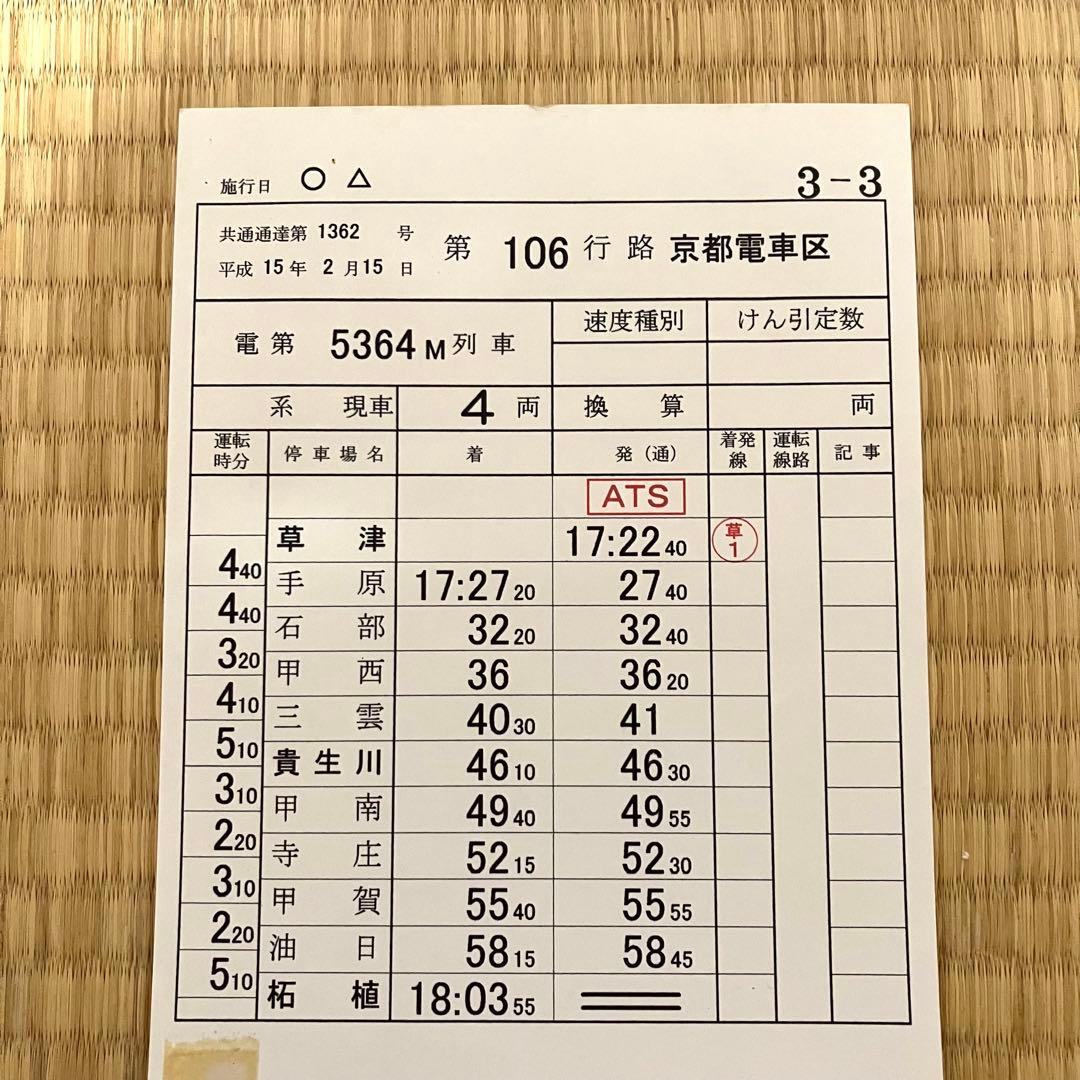 施行日 ○ △ 3-3
共通通達第 1362 号
平成 15年 2月15日
第 106 行路 京都電車区
電第 5364M列車
速度種別 けん引定数
系 現車 4 両 換算 両
運転時分 停車場名 着 発(通) 着発線 運転線路 記事
ATS
草津 17:22 40 草1
4 40
手原 17:27 20 27 40
4 40
石部 32 20 32 40
3 20
甲西 36 36 20
4 10
三雲 40 30 41
5 10
貴生川 46 10 46 30
3 10
甲南 49 40 49 55
2 20
寺庄 52 15 52 30
3 10
甲賀 55 40 55 55
2 20
油日 58 15 58 45
5 10
柘植 18:03 55